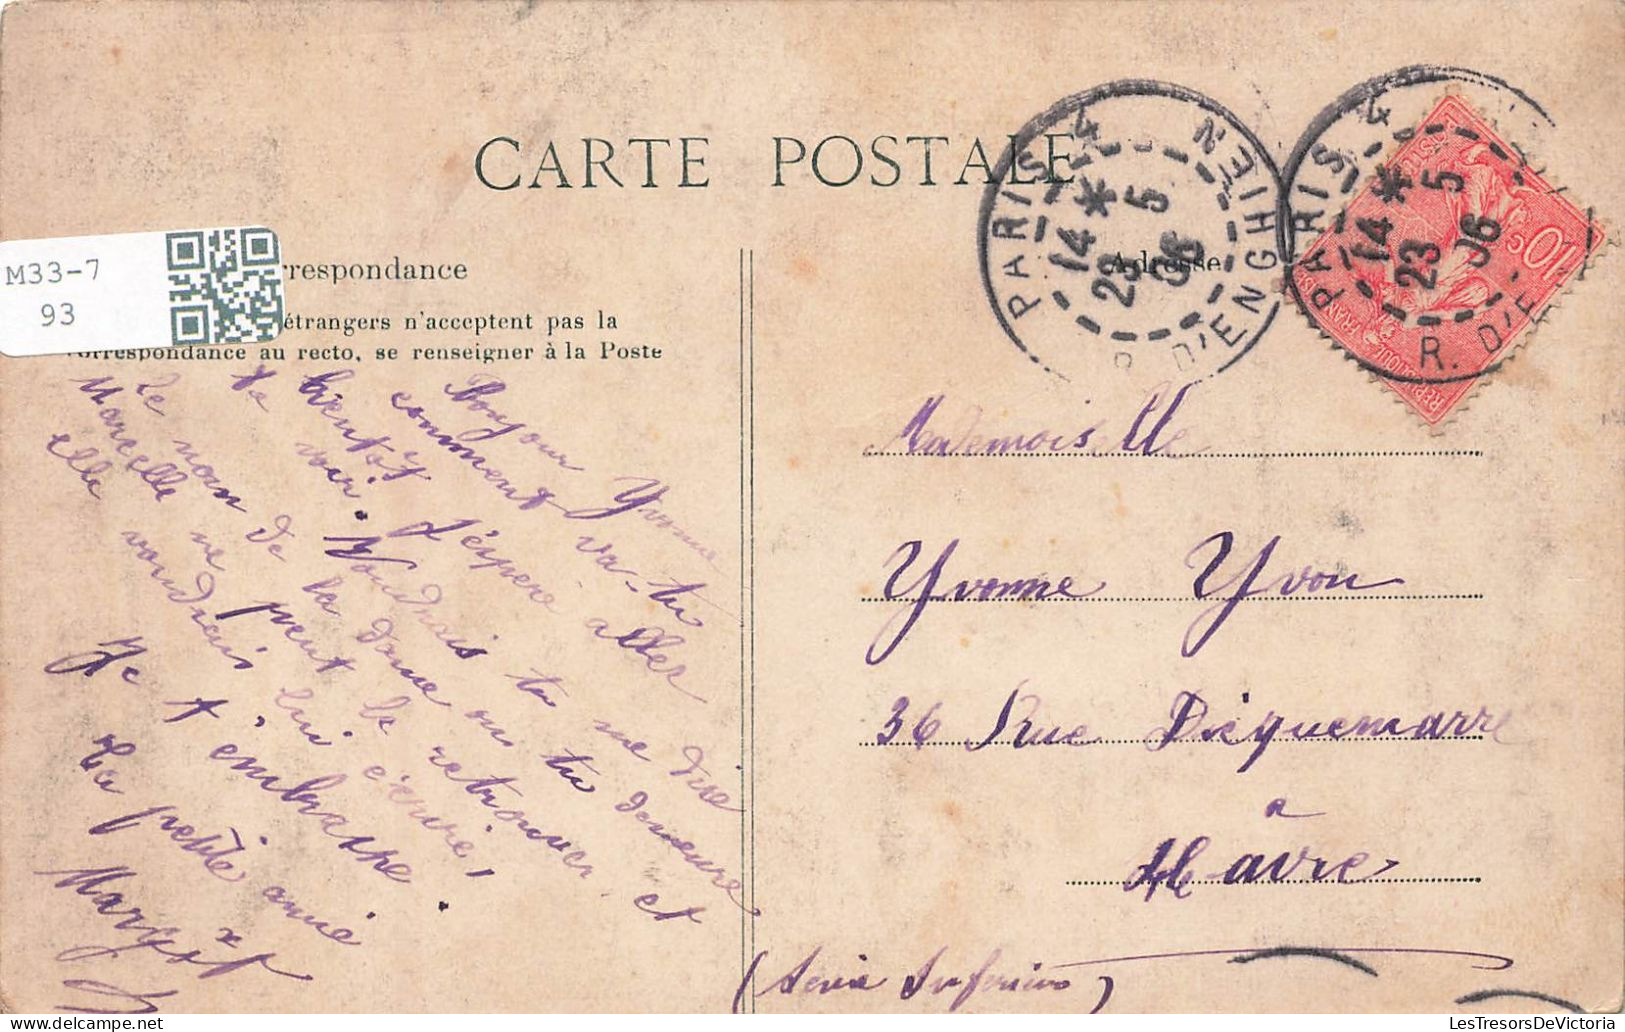 CARTE POSTALE
M33-7
93
rrespondance
étrangers n'acceptent pas la
correspondance au recto, se renseigner à la Poste
Adresse
PARIS 4 R. D'ENGHIEN
14 * 23 5 06
PARIS 4 R. D'E
14 * 23 5 06
10 c
REPUBLIQUE FRANÇAISE
POSTES
Bonjour Yvonne
comment va-tu
bientôt j'éspère aller
te voir. Voudrais tu me dire
le nom de la dame ou tu demeure
Marcelle ne peut la retrouver et
elle voudrais lui écrire!
Je t'embrasse.
Ta petite amie
Margot
Mademoiselle
Yvonne Yvon
36 Rue Dicquemarre
a
Havre
(Seine Inférieure)
LesTresorsDeVictoria